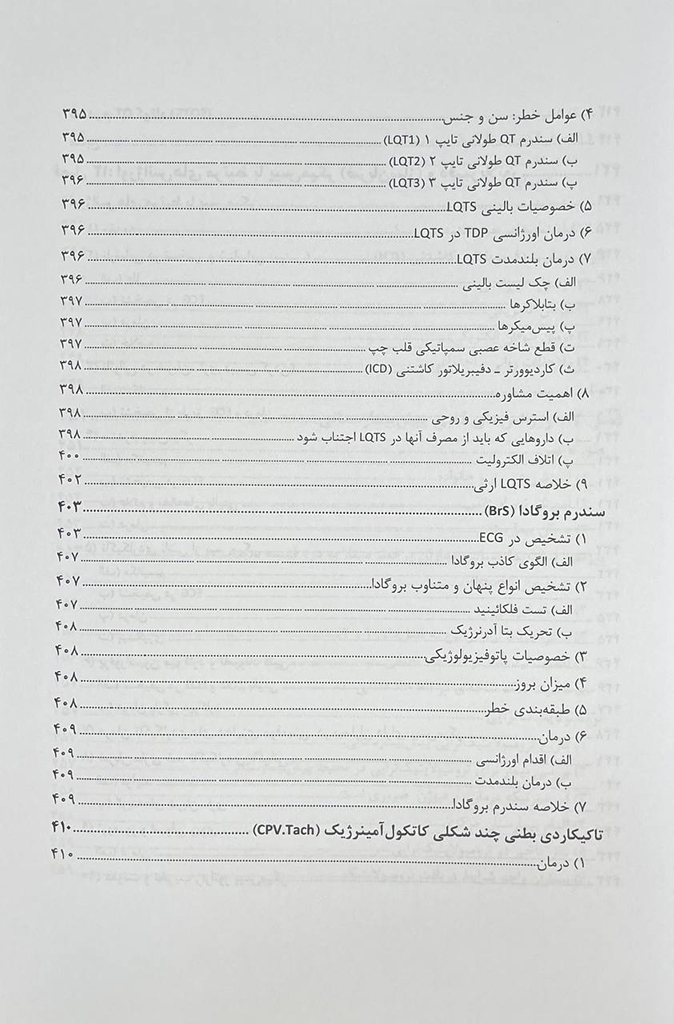 ۴) عوامل خطر: سن و جنس ۳۹۵
الف) سندرم QT طولانی تایپ ۱ (LQT1) ۳۹۵
ب) سندرم QT طولانی تایپ ۲ (LQT2) ۳۹۵
پ) سندرم QT طولانی تایپ ۳ (LQT3) ۳۹۶
۵) خصوصیات بالینی LQTS ۳۹۶
۶) درمان اورژانسی TDP در LQTS ۳۹۶
۷) درمان بلندمدت LQTS ۳۹۶
الف) چک لیست بالینی ۳۹۶
ب) بتابلاکرها ۳۹۷
پ) پیس‌میکرها ۳۹۷
ت) قطع شاخه عصبی سمپاتیکی قلب چپ ۳۹۷
ث) کاردیوورتر ـ دفیبریلاتور کاشتنی (ICD) ۳۹۸
۸) اهمیت مشاوره ۳۹۸
الف) استرس فیزیکی و روحی ۳۹۸
ب) داروهایی که باید از مصرف آنها در LQTS اجتناب شود ۳۹۸
پ) اتلاف الکترولیت ۴۰۰
۹) خلاصه LQTS ارثی ۴۰۲
سندرم بروگادا (BrS) ۴۰۳
۱) تشخیص در ECG ۴۰۳
الف) الگوی کاذب بروگادا ۴۰۷
۲) تشخیص انواع پنهان و متناوب بروگادا ۴۰۷
الف) تست فلکائینید ۴۰۷
ب) تحریک بتا آدرنرژیک ۴۰۸
۳) خصوصیات پاتوفیزیولوژیکی ۴۰۸
۴) میزان بروز ۴۰۸
۵) طبقه‌بندی خطر ۴۰۸
۶) درمان ۴۰۹
الف) اقدام اورژانسی ۴۰۹
ب) درمان بلندمدت ۴۰۹
۷) خلاصه سندرم بروگادا ۴۰۹
تاکیکاردی بطنی چند شکلی کاتکول‌آمینرژیک (CPV.Tach) ۴۱۰
۱) درمان ۴۱۰